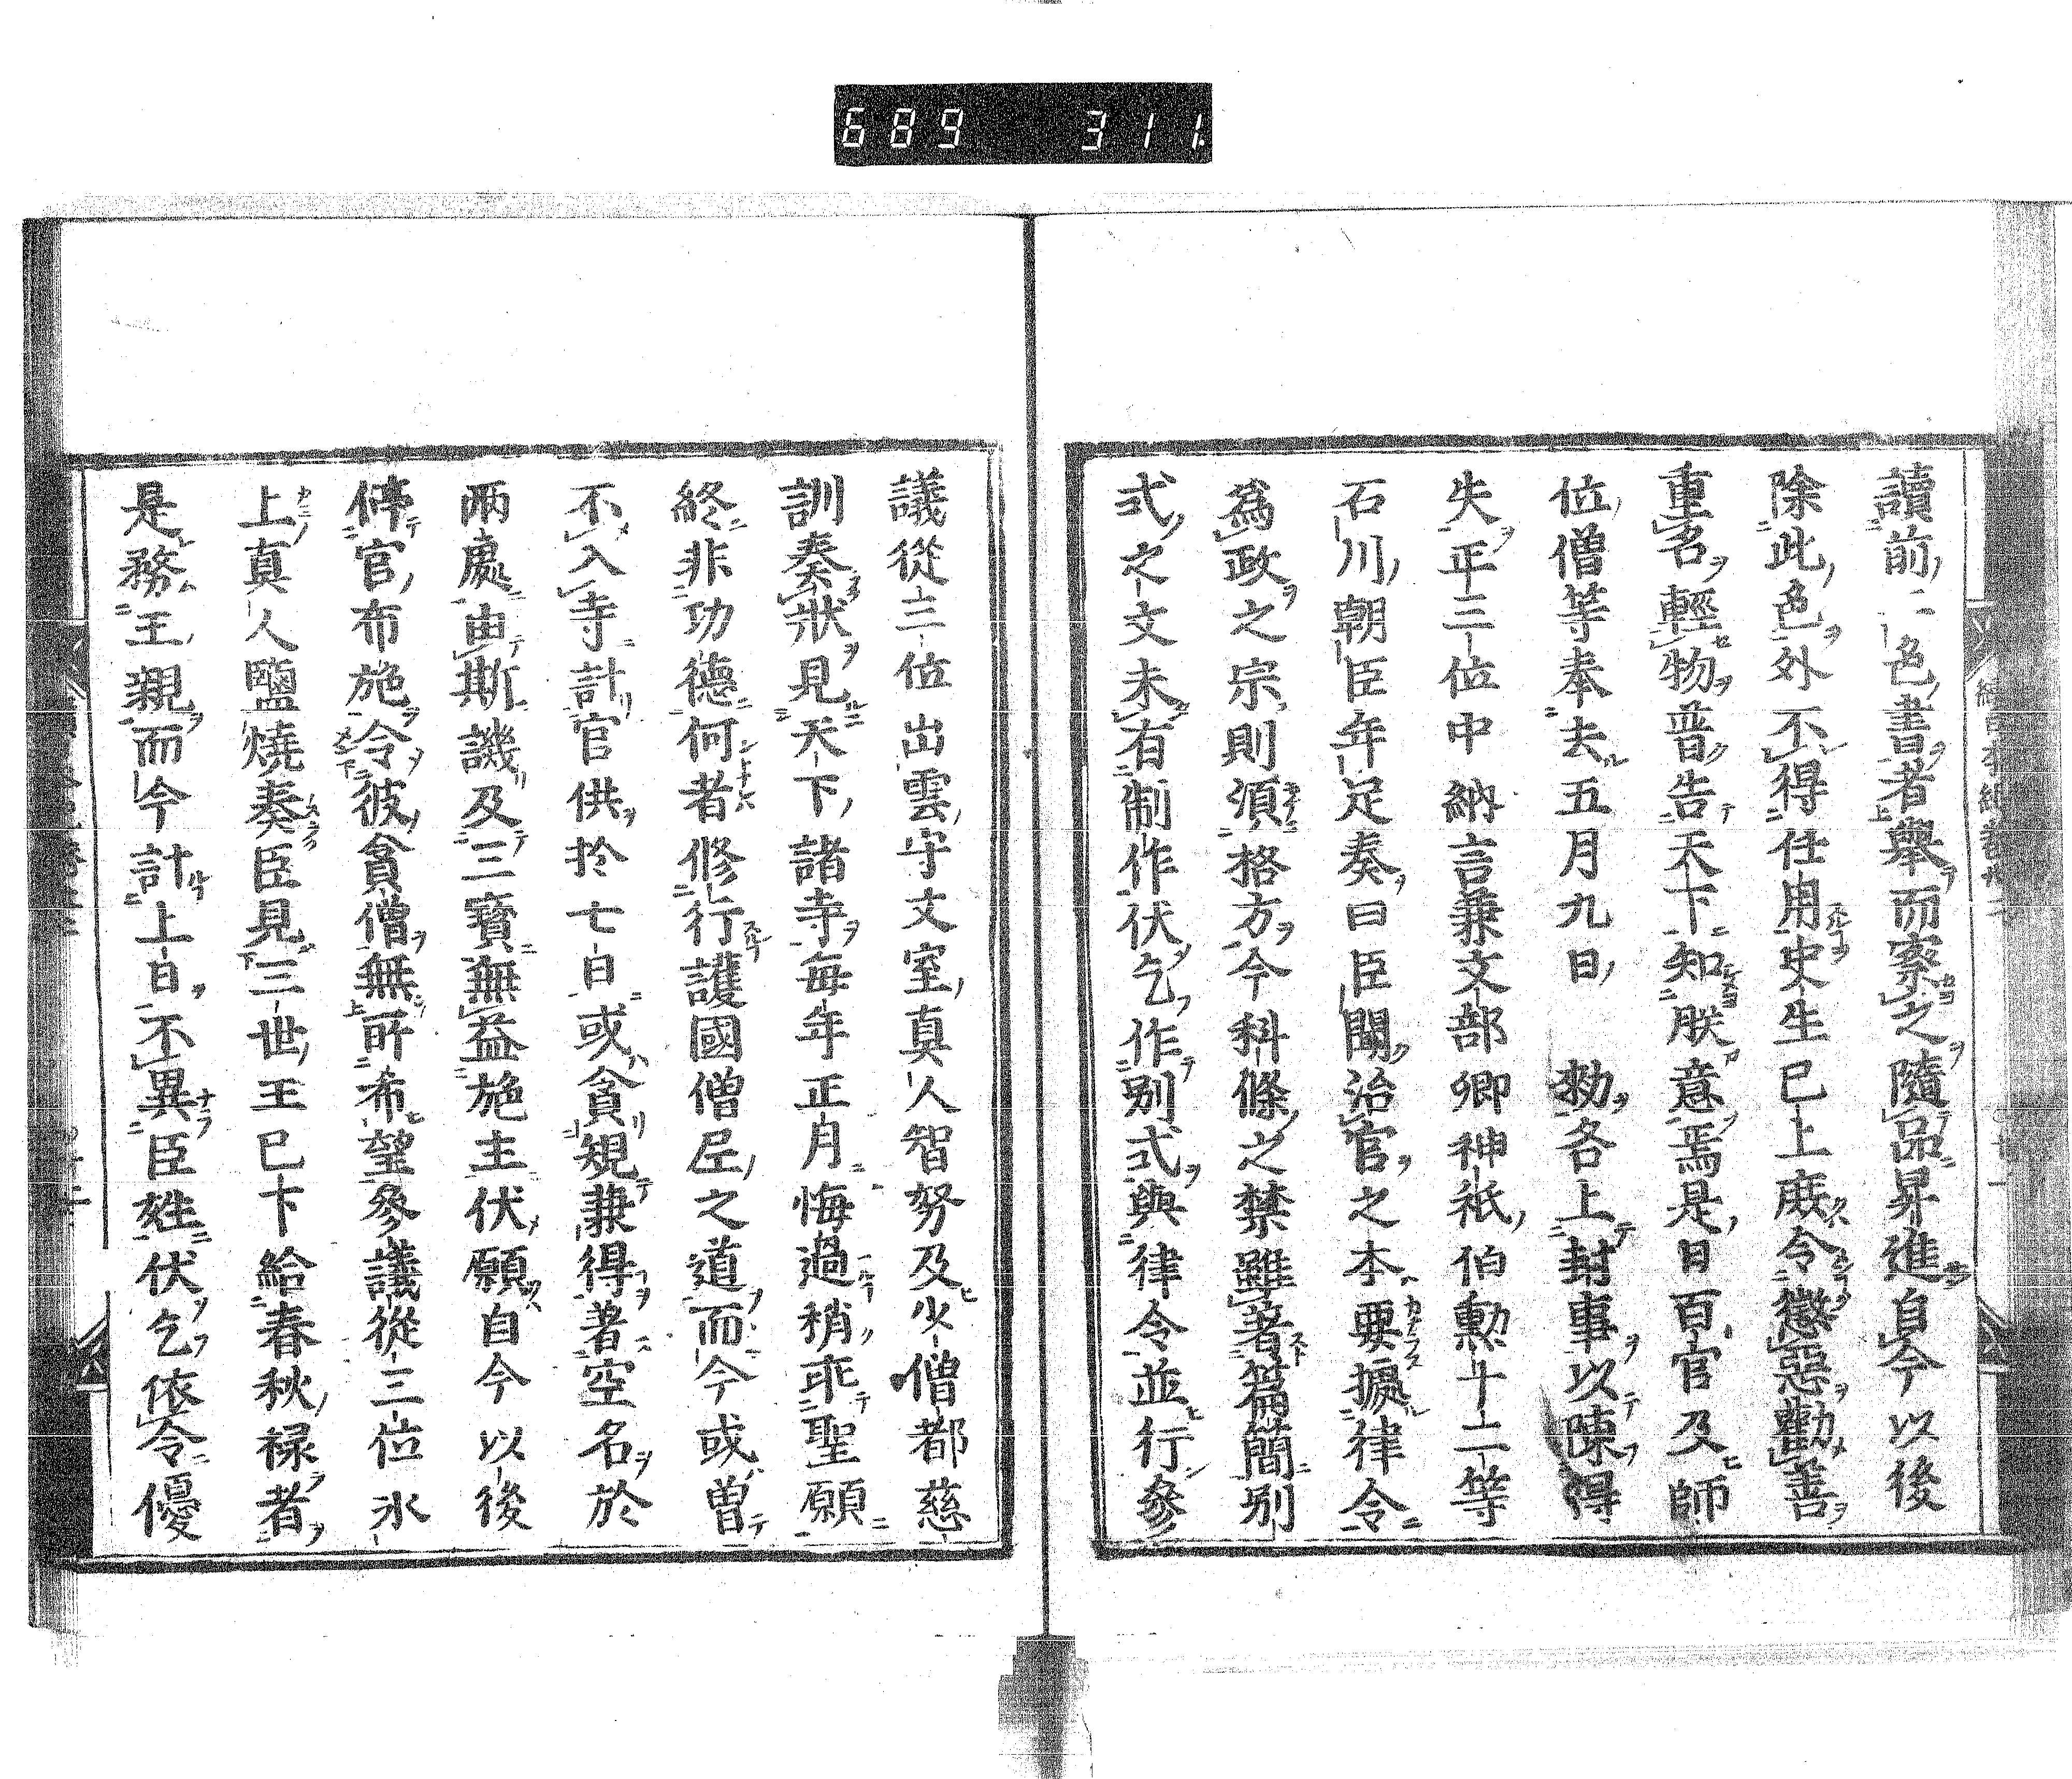 689 311
讀前二色書者擧而察之隨品昇進自今以後
除此色外不得任用史生已上庶令懲惡勸善
重名輕物普告天下知朕意焉是日百官及師
位僧等奉去五月九日 勅各上封事以陳得
失正三位中納言兼文部卿神祇伯勳十二等
石川朝臣年足奏曰臣聞治官之本要據律令
爲政之宗則須格方今科條之禁雖著篇簡別
式之文未有制作伏乞作別式與律令並行參
議從三位出雲守文室真人智努及少僧都慈
訓奏狀見天下諸寺毎年正月悔過稍乖聖願
終非功德何者修行護國僧尼之道而今或曽
不入寺計官供於七日或貪規兼得著空名於
兩處由斯譏及三寶無益施主伏願自今以後
停官布施令彼貪僧無所希望參議從三位氷
上真人鹽燒奏臣見三世王已下給春秋禄者
是務王親而今計上日不異臣姓伏乞依令優